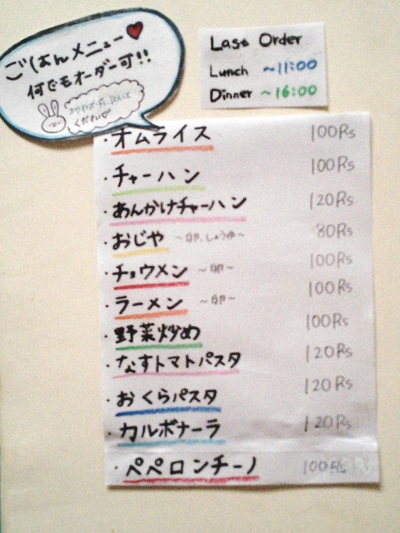 ごはんメニュー♥
何でもオーダー可!!
ください♡
Last Order
Lunch ~11:00
Dinner ~16:00
・オムライス 100Rs
・チャーハン 100Rs
・あんかけチャーハン 120Rs
・おじや ~卵、しょうゆ~ 80Rs
・チョウメン ~卵~ 100Rs
・ラーメン ~卵~ 100Rs
・野菜炒め 100Rs
・なすトマトパスタ 120Rs
・おくらパスタ 120Rs
・カルボナーラ 120Rs
・ペペロンチーノ 100Rs